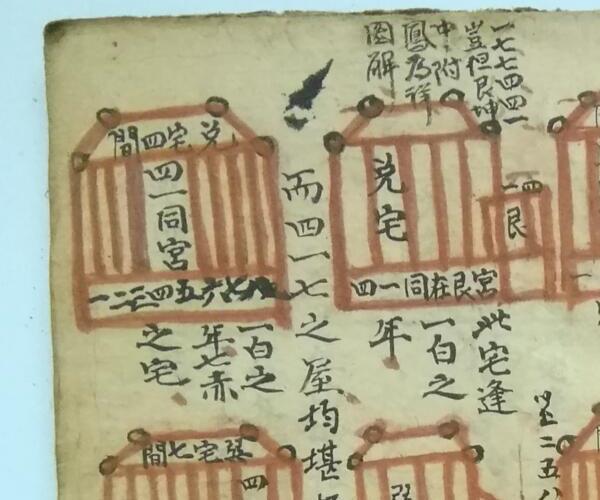 一七七四四一
豈但艮坤
中附
鳳為祥
圖解
四一
艮
兌宅
宮艮在同一四
此宅逢
一白之
年
而四一七之屋均堪
兌宅四間
四一同宮
八七六五四三二一
一白之
年七赤
之宅
至二五
宅七間
四
一